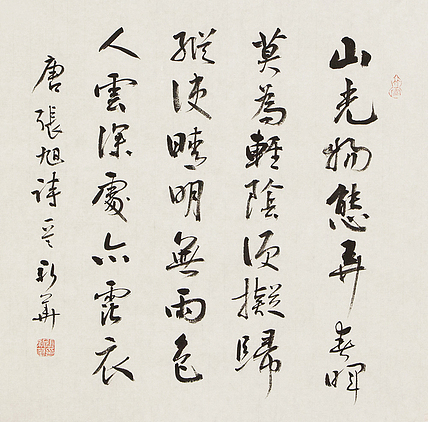 山光物態弄春暉
莫為輕陰便擬歸
縱使晴明無雨色
入雲深處亦霑衣
唐張旭詩 新華